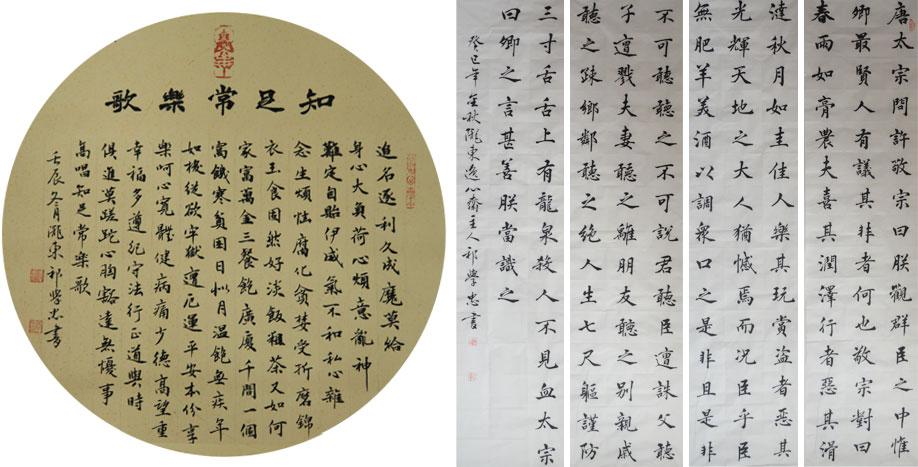 知足常樂歌
追名逐利久成魔莫給
身心大負荷心煩意亂神
難定自貽伊戚氣不和私心雜
念生煩惱腐化貪婪受折磨錦
衣玉食固然好淡飯粗茶又如何
家富萬金三餐飽廣廈千間一個
窩饑寒貧困日似月溫飽無疾年
如梭縱欲牢獄遭厄運平安本份享
樂呵心寬體健病痛少德高望重
幸福多遵紀守法行正道與時
俱進莫蹉跎心胸豁達無憂事
高唱知足常樂歌
壬辰冬月隴東祁學忠書
唐太宗問許敬宗曰朕觀群臣之中惟
卿最賢人有議其非者何也敬宗對曰
春雨如膏農夫喜其潤澤行者惡其滑
澾秋月如圭佳人樂其玩賞盜者惡其
光輝天地之大人猶憾焉而況臣乎臣
無肥羊美酒以調眾口之是非且是非
不可聽聽之不可說君聽臣遭誅父聽
子遭戮夫妻聽之離朋友聽之別親戚
聽之疎鄉鄰聽之絕人生七尺軀謹防
三寸舌舌上有龍泉殺人不見血太宗
曰卿之言甚善朕當識之
癸巳年金秋隴東逸心齋主人祁學忠書